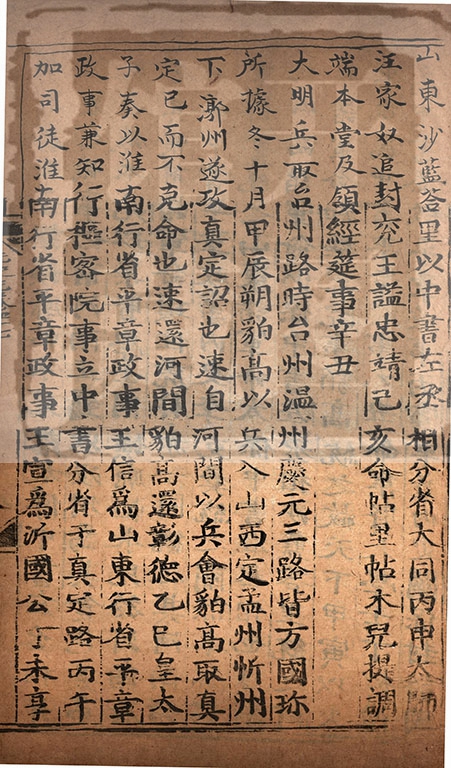 山東沙藍荅里以中書左丞相分省大同丙申太師
汪家奴追封兖王謚忠靖己亥命帖里帖木兒提調
端本堂及領經筵事辛丑
大明兵取台州路時台州溫州慶元三路皆方國珍
所據冬十月甲辰朔豹高以兵入山西定孟州忻州
下郭州遂攻真定詔也速自河間以兵會豹高取真
定已而不克命也速還河間豹高還彰德乙巳皇太
子奏以淮南行省平章政事王信爲山東行省平章
政事兼知行樞密院事立中書分省于真定路丙午
加司徒淮南行省平章政事王宣爲沂國公丁未享